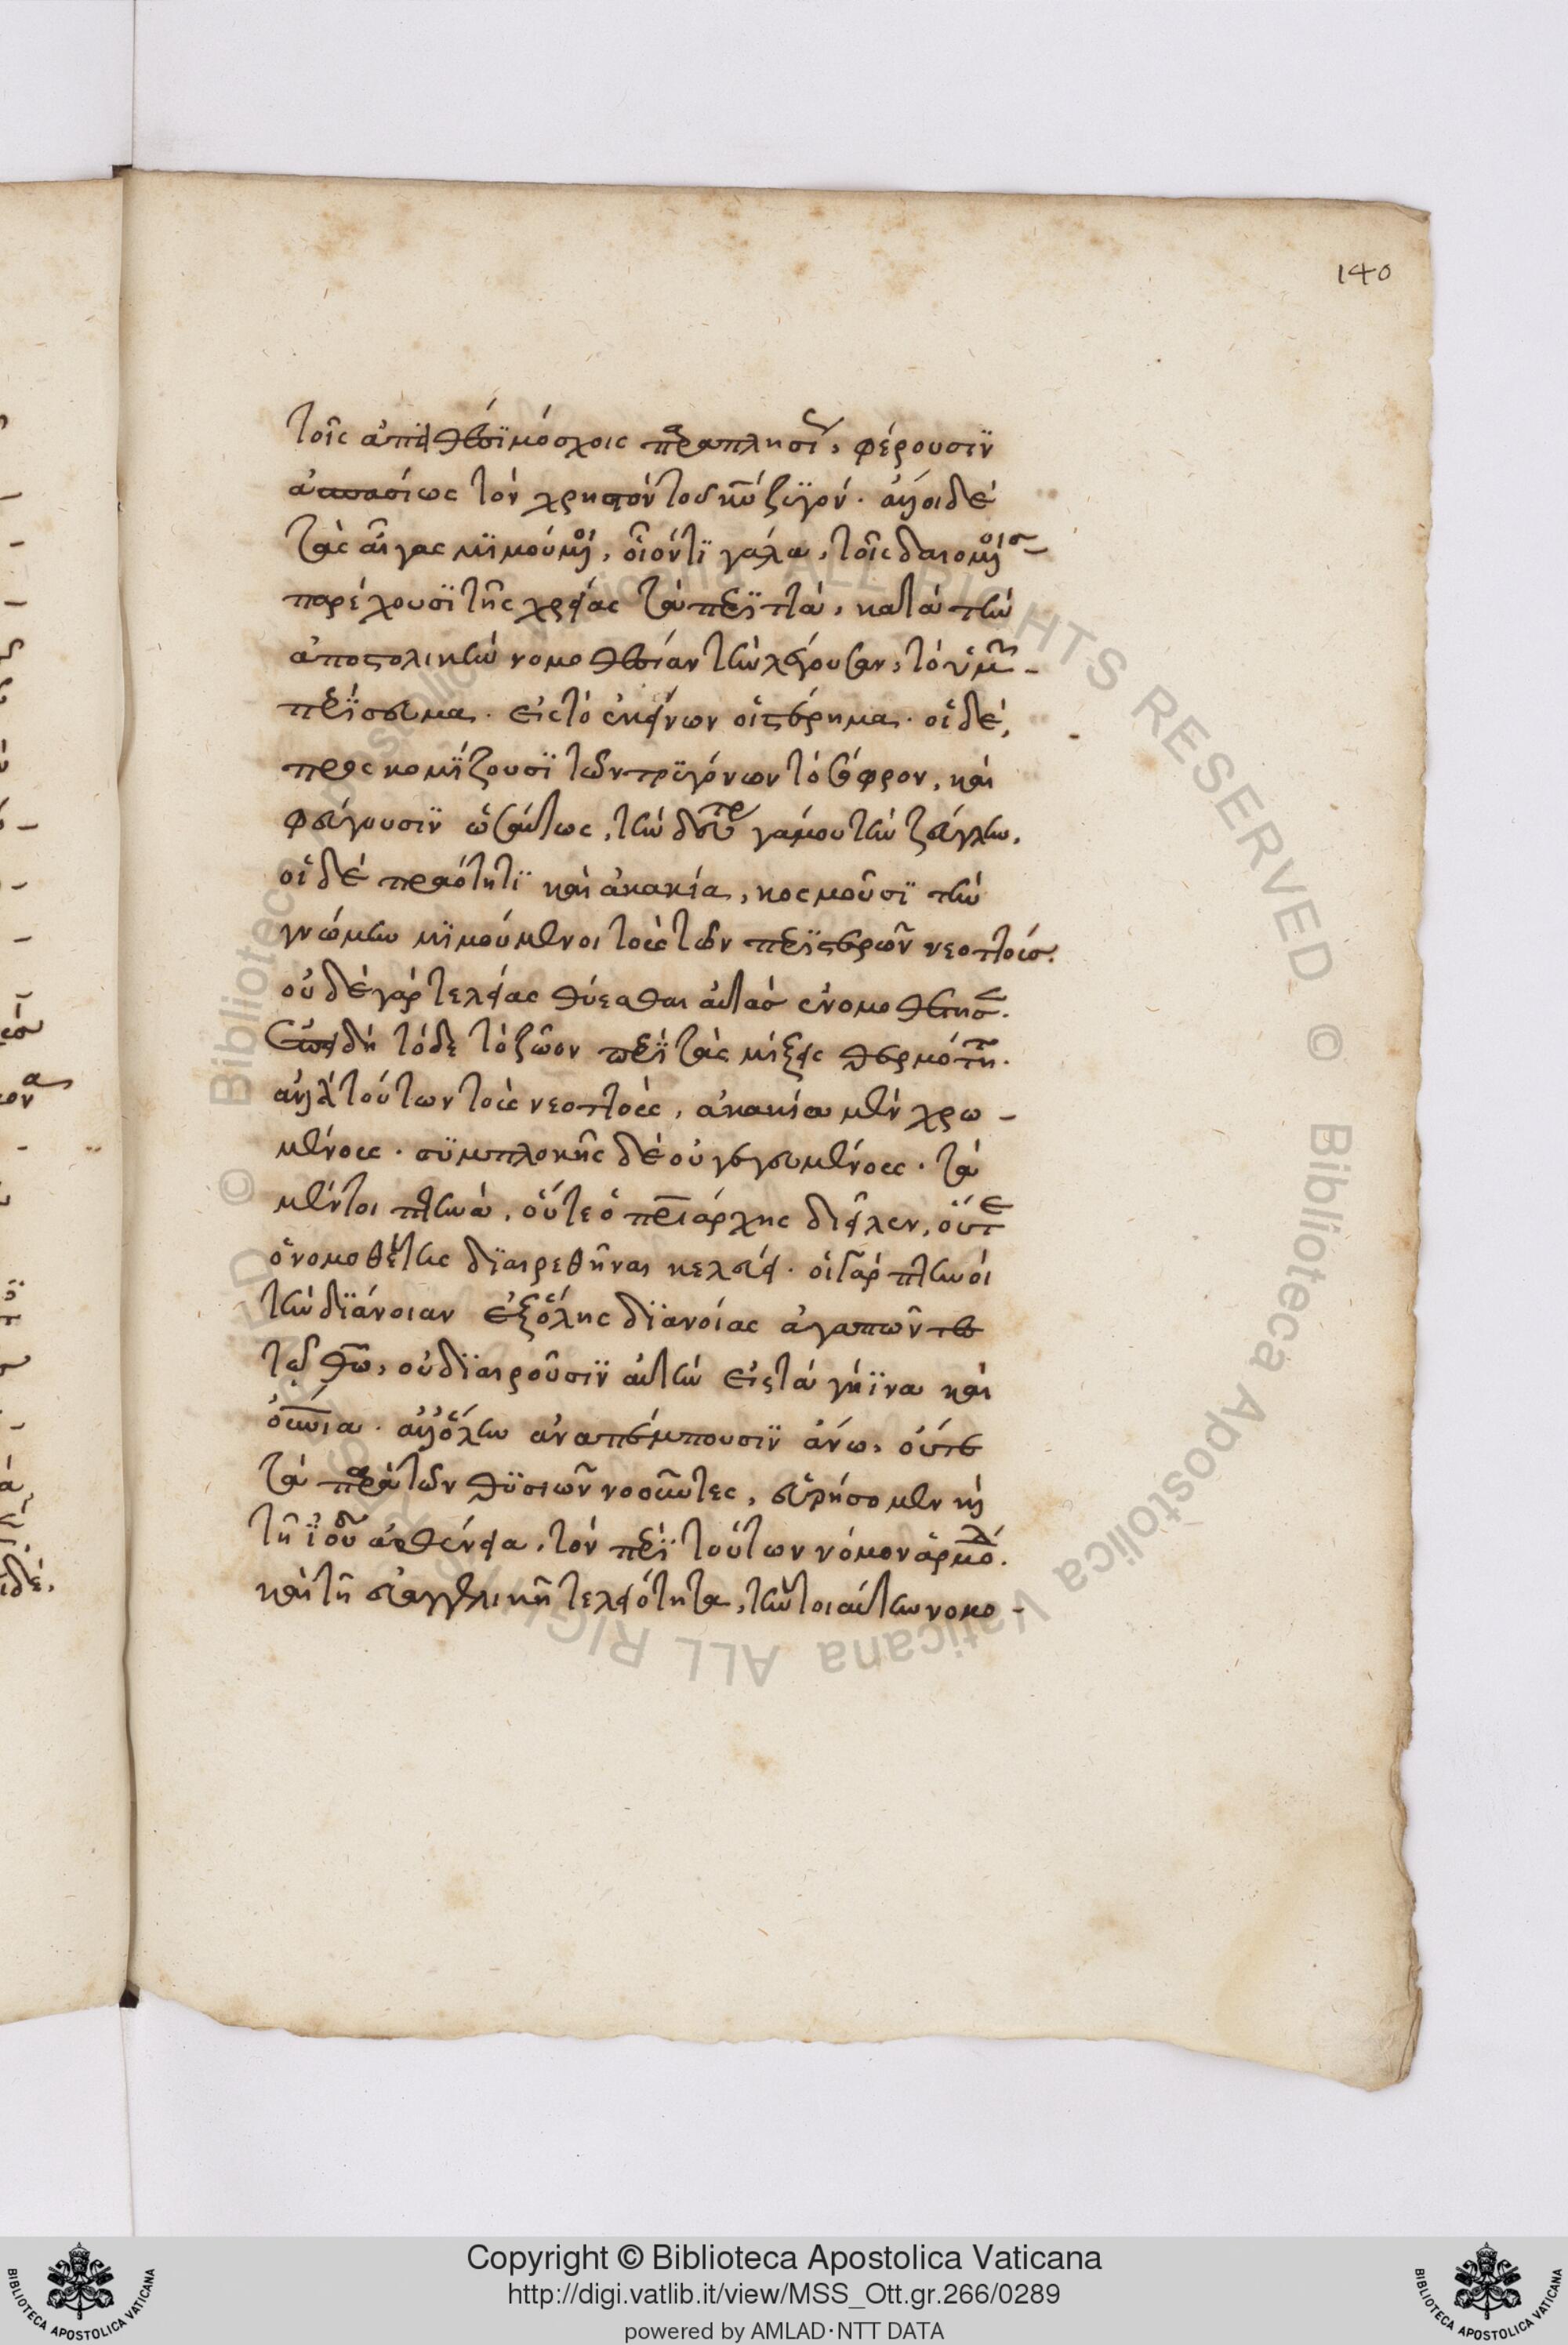 140
τοῖς ἀπειθέσι μόσχοις παραπλησίως, φέρουσιν
ἀσπασίως τὸν χρηστὸν τοῦ κυρίου ζυγόν. ἄλλοι δὲ
τὰς αἶγας μιμούμενοι, οἱονεὶ γάλα, τοῖς δεομένοις
παρέχουσι τῆς χρείας τὰ περιττὰ, κατὰ τὴν
ἀποστολικὴν νομοθεσίαν τὴν λέγουσαν, τὸ ὑμῶν
περίσσευμα. εἰς τὸ ἐκείνων ὑστέρημα. οἱ δὲ,
προσκομίζουσι τῶν τρυγόνων τὸ σῶφρον, καὶ
φεύγουσιν ὡσαύτως, τὴν δευτέρου γάμου τὴν ζεύγλην.
οἱ δὲ πραότητι καὶ ἀκακία, κοσμοῦσι τὴν
γνώμην μιμούμενοι τοὺς τῶν περιστερῶν νεοττούς.
οὐδὲ γὰρ τελείας θύεσθαι αὐτὰς ἐνομοθέτησεν.
ἐπειδὴ τόδε τὸ ζῶον περὶ τὰς μίξεις θερμότατον.
ἀλλὰ τούτων τοὺς νεοττοὺς, ἀκακία μὲν χρω-
μένους. συμπλοκῆς δὲ οὐ γεγευμένους. τὰ
μέντοι πτηνὰ, οὔτε ὁ πατριάρχης διεῖλεν, οὔτε
ὁ νομοθέτης διαιρεθῆναι κελεύει. οἱ γὰρ πτηνοὶ
τὴν διάνοιαν ἐξ ὅλης διανοίας ἀγαπῶντες
τὸν θεὸν, οὐ διαιροῦσιν αὐτὴν εἰς τὰ γήϊνα καὶ
οὐράνια. ἀλλ' ὅλην ἀναπέμπουσιν ἄνω, οὕτω
τὰ περὶ τῶν θυσιῶν νοοῦντες, εὑρήσομεν καὶ
τῇ ἰουδαίων ἀσθενεία, τὸν περὶ τούτων νόμον ἁρμόδιον.
καὶ τῇ εὐαγγελικῇ τελειότητι, τὴν τοιαύτην νομο-